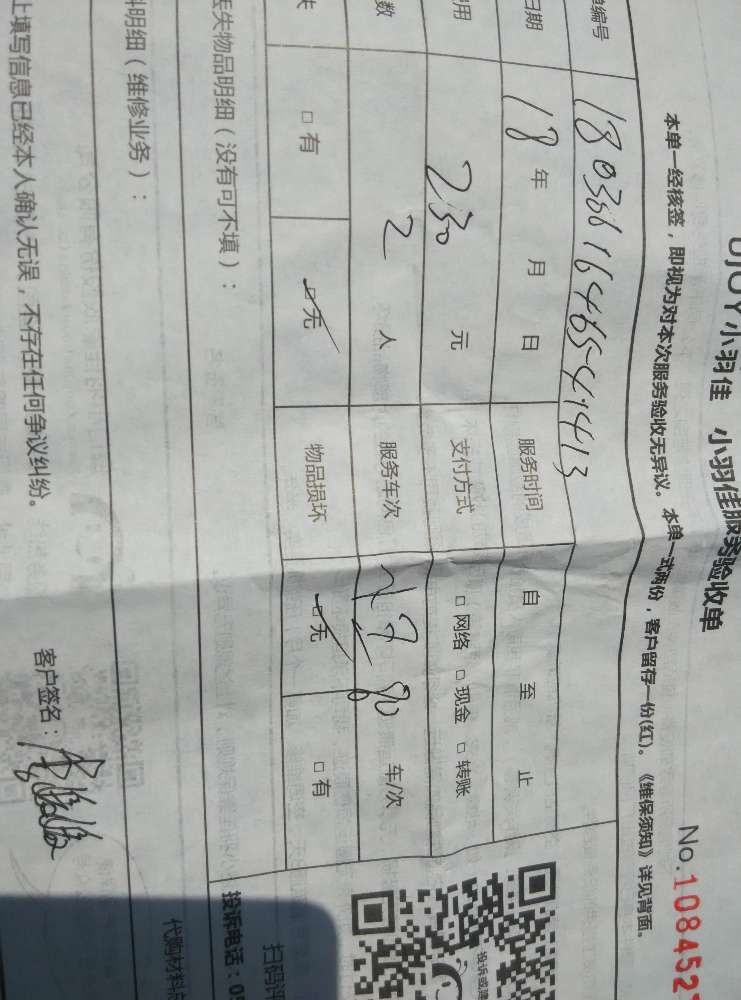 UJOY小羽佳 小羽佳服务验收单
No.1084527
本单一经核签，即视为对本次服务验收无异议。本单一式两份，客户留存一份(红)。《维保须知》详见背面。
单编号
日期 18年 月 日 服务时间 自 至 止
费用 230 元 支付方式 □网络 □现金 □转账
数 2 人 服务车次 车/次
失 □有 □无 物品损坏 □无 □有
丢失物品明细（没有可不填）：
料明细（维修业务）：
上填写信息已经本人确认无误，不存在任何争议纠纷。
客户签名：
投诉或建
扫码评
投诉电话：05
代购材料